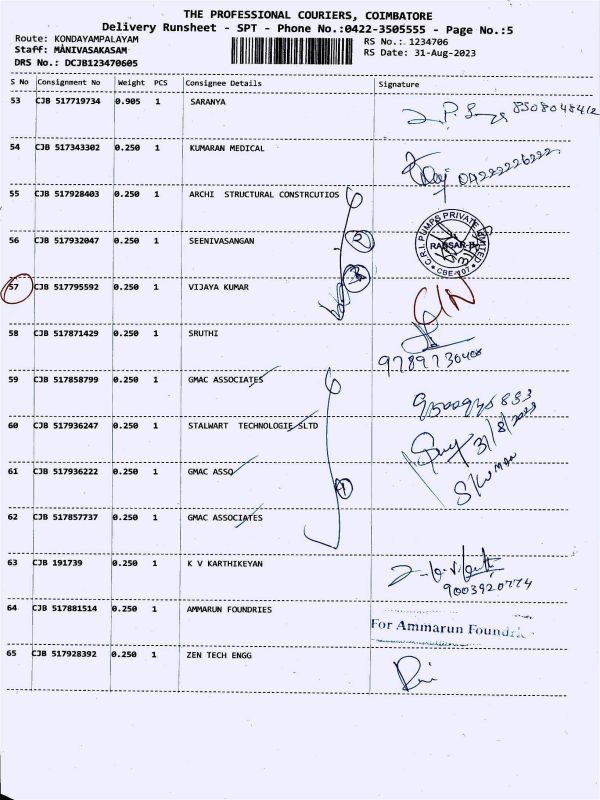 THE PROFESSIONAL COURIERS, COIMBATORE
Delivery Runsheet - SPT - Phone No.:0422-3505555 - Page No.:5
Route: KONDAYAMPALAYAM
RS No.: 1234706
Staff: MANIVASAKASAM
RS Date: 31-Aug-2023
DRS No.: DCJB123470605
S No Consignment No Weight PCS Consignee Details Signature
53 CJB 517719734 0.905 1 SARANYA 8508048412
54 CJB 517343302 0.250 1 KUMARAN MEDICAL 04222226222
55 CJB 517928403 0.250 1 ARCHI STRUCTURAL CONSTRCUTIOS
56 CJB 517932047 0.250 1 SEENIVASANGAN 2 C.R.I. PUMPS PRIVATE LIMITED CBE-107
57 CJB 517795592 0.250 1 VIJAYA KUMAR
58 CJB 517871429 0.250 1 SRUTHI
59 CJB 517858799 0.250 1 GMAC ASSOCIATES
60 CJB 517936247 0.250 1 STALWART TECHNOLOGIE SLTD 31/8/2023
61 CJB 517936222 0.250 1 GMAC ASSO
62 CJB 517857737 0.250 1 GMAC ASSOCIATES
63 CJB 191739 0.250 1 K V KARTHIKEYAN
9003920774
64 CJB 517881514 0.250 1 AMMARUN FOUNDRIES For Ammarun Foundrie
65 CJB 517928392 0.250 1 ZEN TECH ENGG